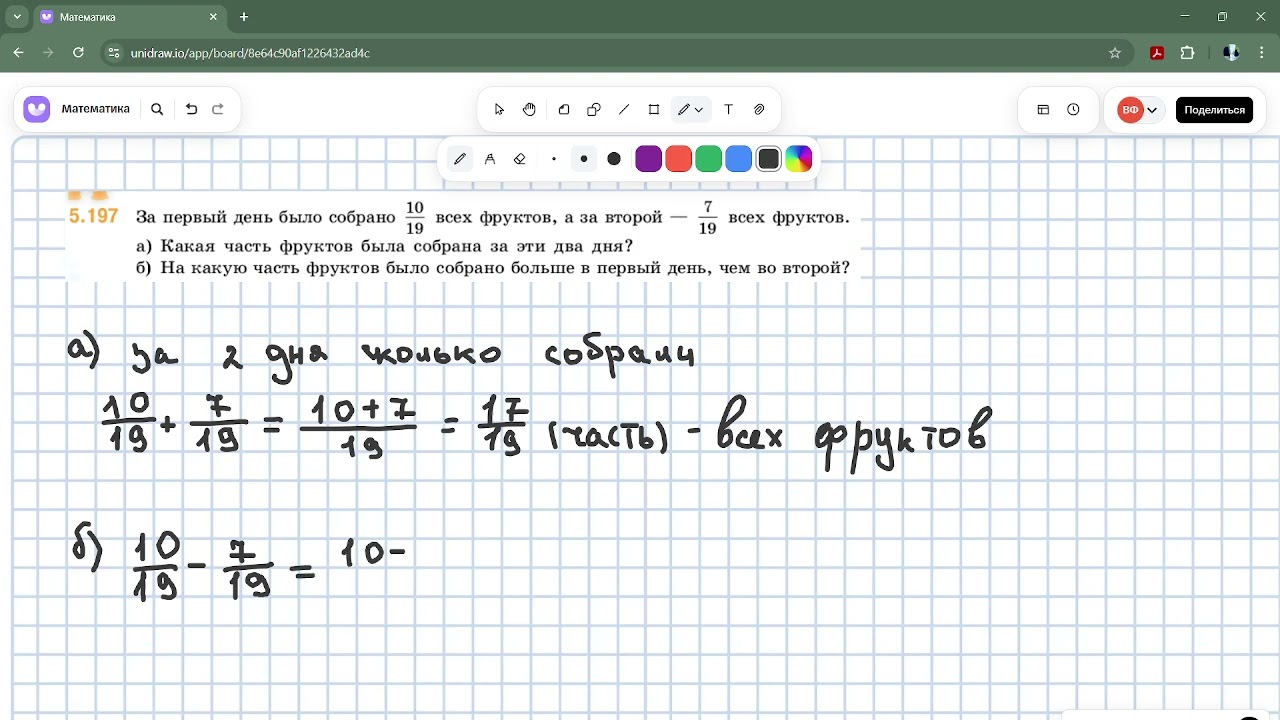 Математика
unidraw.io/app/board/8e64c90af1226432ad4c
Математика
T
ВФ
Поделиться
5.197 За первый день было собрано 10/19 всех фруктов, а за второй — 7/19 всех фруктов.
а) Какая часть фруктов была собрана за эти два дня?
б) На какую часть фруктов было собрано больше в первый день, чем во второй?
а) за 2 дня сколько собрали
10/19 + 7/19 = (10+7)/19 = 17/19 (часть) - всех фруктов
б) 10/19 - 7/19 = 10-